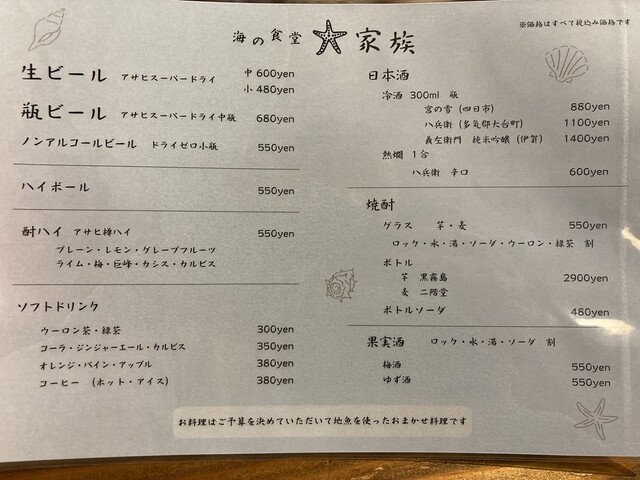 海の食堂 家族
※価格はすべて税込み価格です
生ビール アサヒスーパードライ 中 600yen
小 480yen
瓶ビール アサヒスーパードライ中瓶 680yen
ノンアルコールビール ドライゼロ小瓶 550yen
ハイボール 550yen
酎ハイ アサヒ樽ハイ 550yen
プレーン・レモン・グレープフルーツ
ライム・梅・巨峰・カシス・カルピス
ソフトドリンク
ウーロン茶・緑茶 300yen
コーラ・ジンジャーエール・カルピス 350yen
オレンジ・パイン・アップル 380yen
コーヒー （ホット・アイス） 380yen
日本酒
冷酒 300ml 瓶
宮の雪（四日市） 880yen
八兵衛（多気郡大台町） 1100yen
義左衛門 純米吟醸（伊賀） 1400yen
熱燗 1合
八兵衛 辛口 600yen
焼酎
グラス 芋・麦 550yen
ロック・水・湯・ソーダ・ウーロン・緑茶 割
ボトル
芋 黒霧島 2900yen
麦 二階堂
ボトルソーダ 480yen
果実酒 ロック・水・湯・ソーダ 割
梅酒 550yen
ゆず酒 550yen
お料理はご予算を決めていただいて地魚を使ったおまかせ料理です